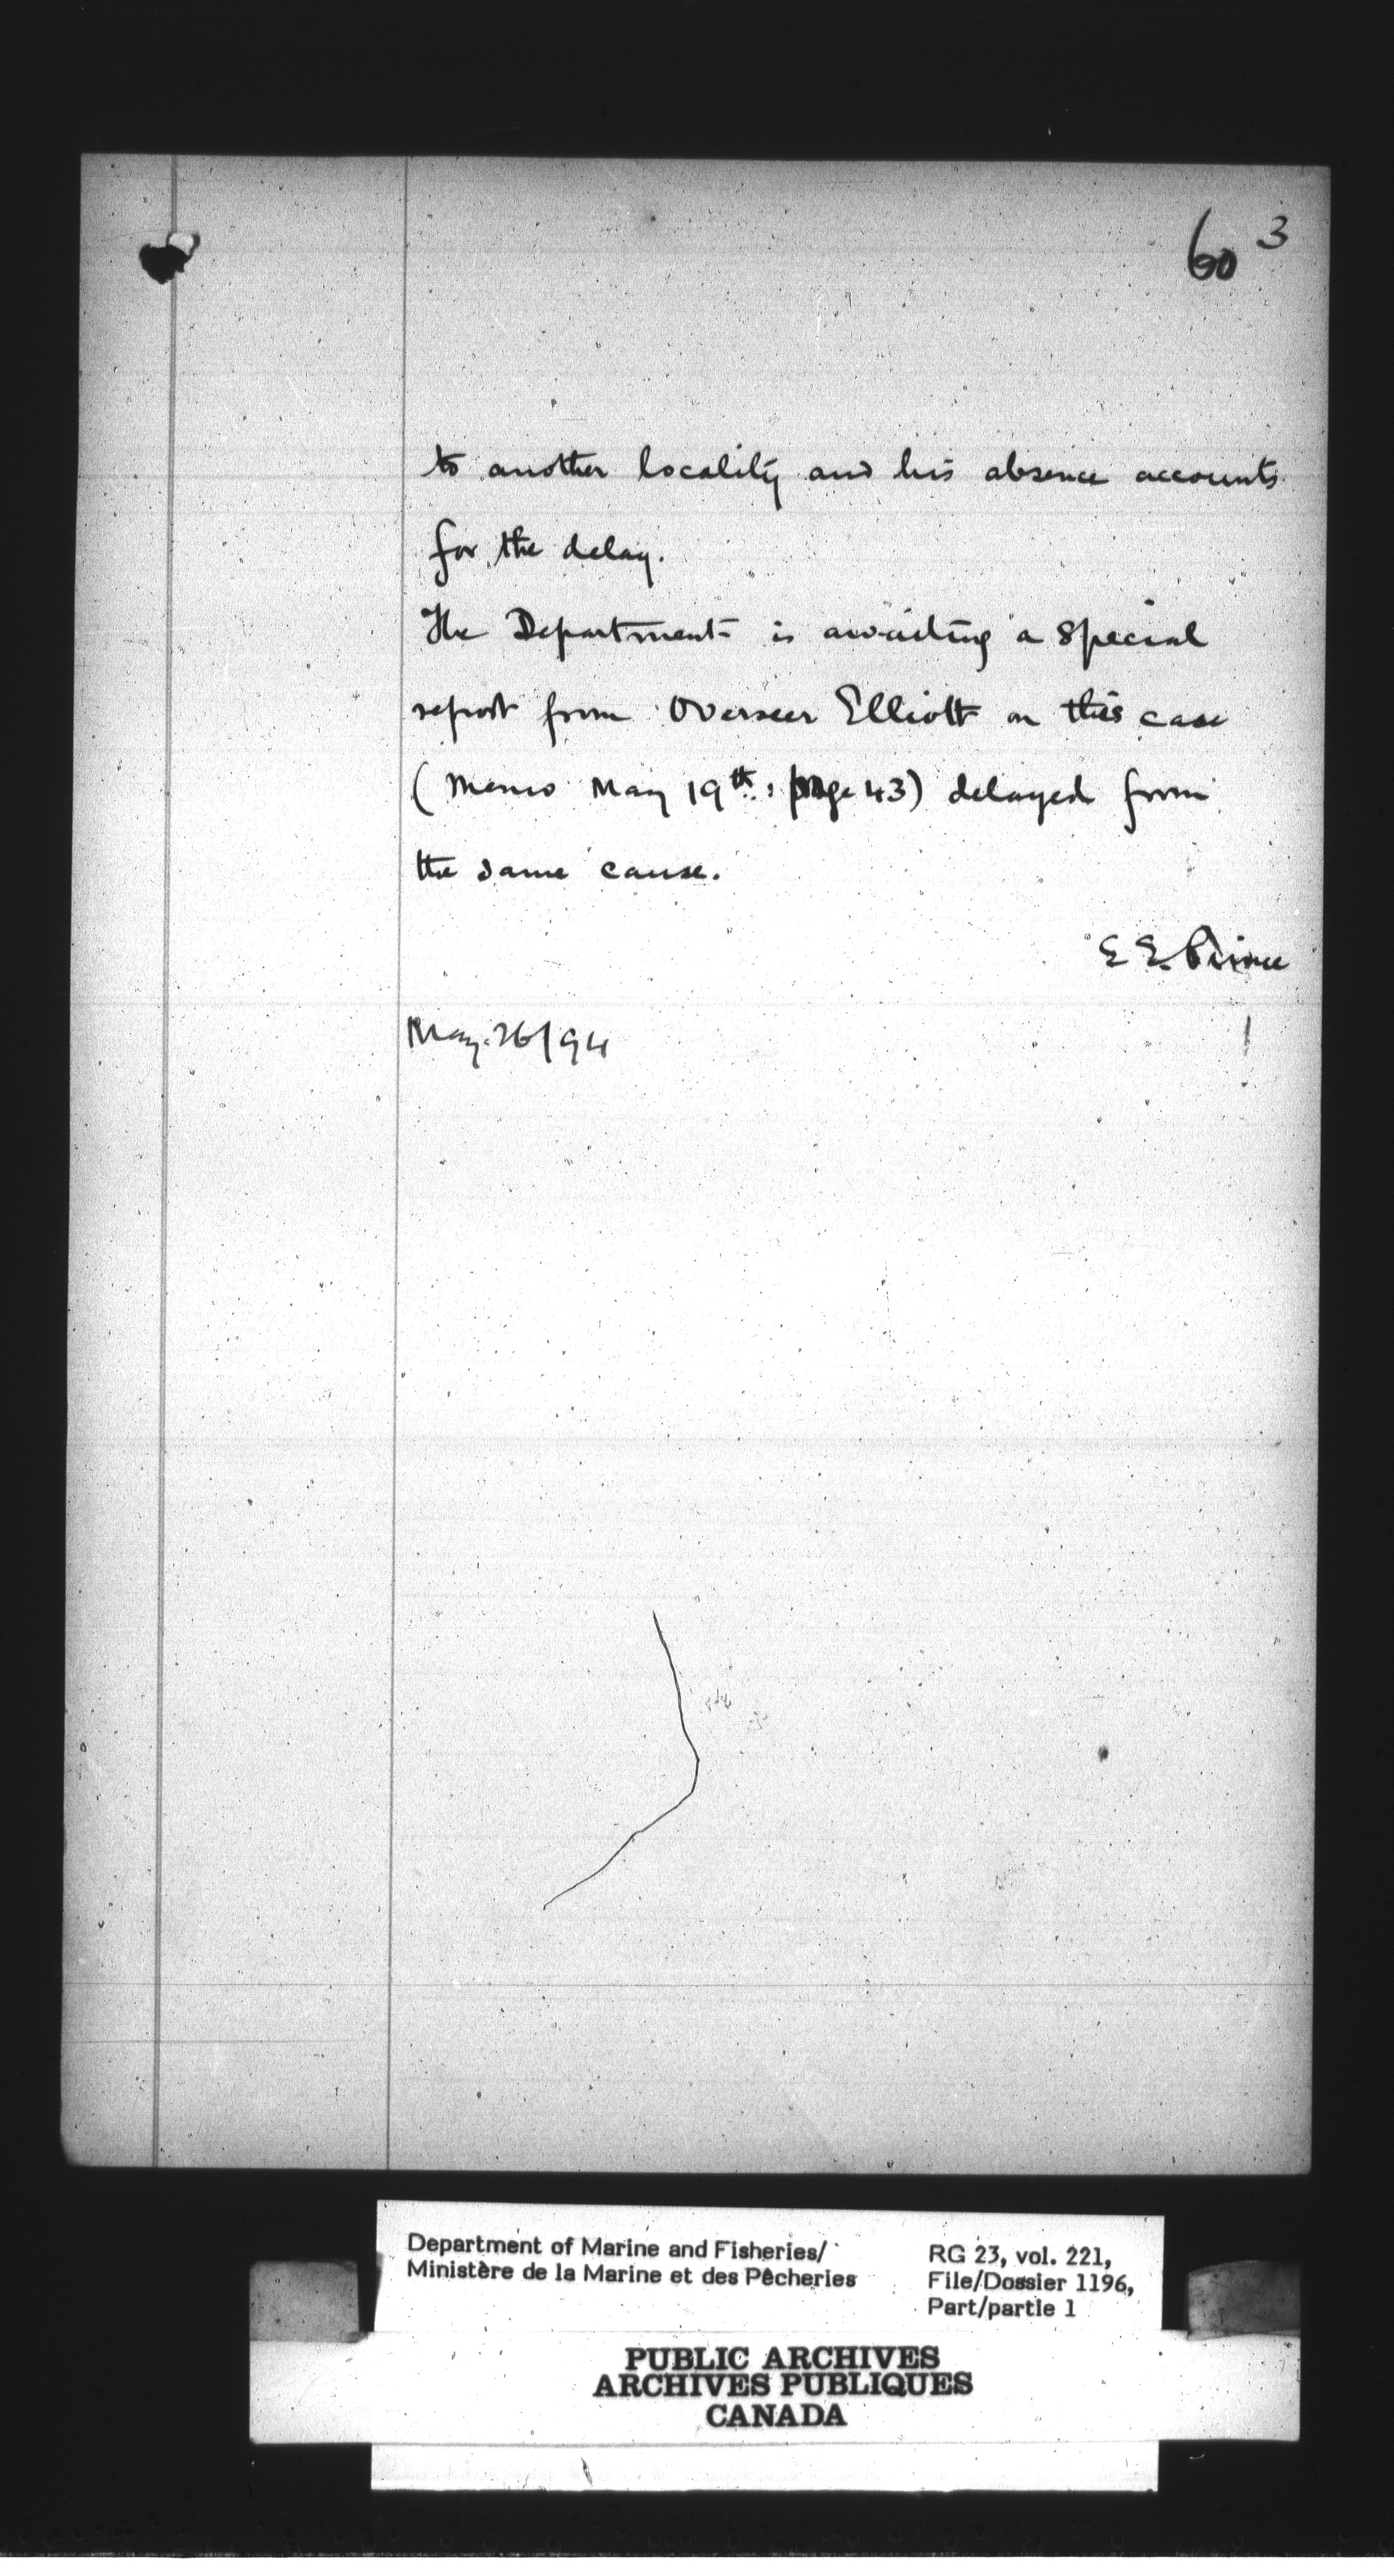 60 3
to another locality and his absence accounts
for the delay.
The Department is awaiting a Special
report from Overseer Elliott on this case
(Memo May 19th: page 43) delayed from
the same cause.
E E. Prince
May. 26/94
Department of Marine and Fisheries/
Ministère de la Marine et des Pêcheries
RG 23, vol. 221,
File/Dossier 1196,
Part/partie 1
PUBLIC ARCHIVES
ARCHIVES PUBLIQUES
CANADA